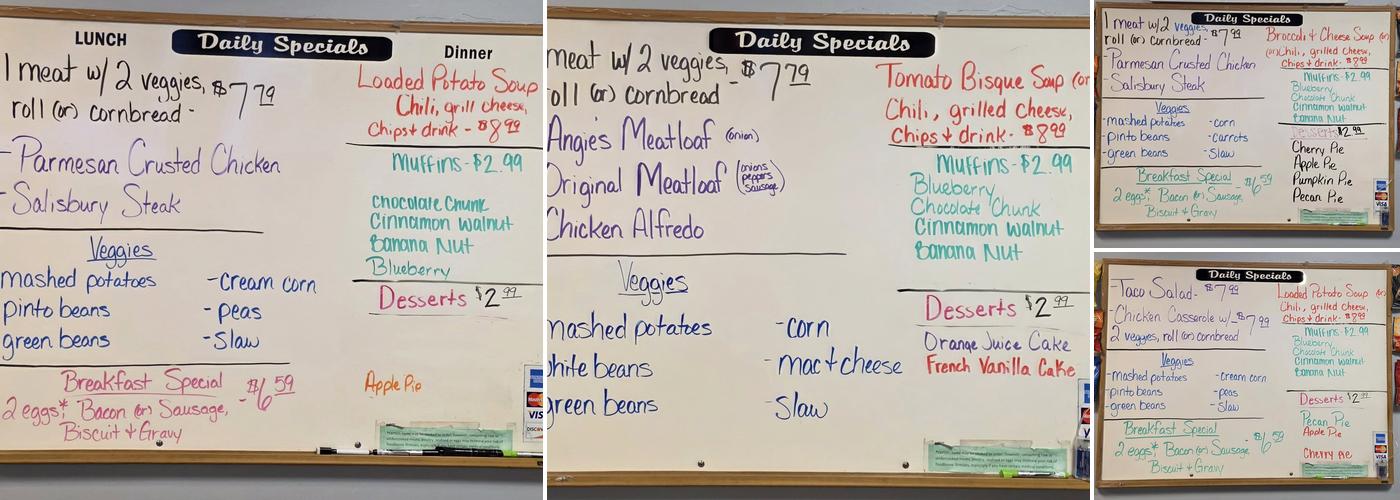 LUNCH
Daily Specials
Dinner
1 meat w/2 veggies, $7 79
roll (or) cornbread -
- Parmesan Crusted Chicken
- Salisbury Steak
Veggies
mashed potatoes
pinto beans
green beans
-cream corn
- peas
- Slaw
Breakfast Special - $6 59
2 eggs* Bacon (or) Sausage,
Biscuit & Gravy
Loaded Potato Soup
Chili, grill cheese,
Chips & drink - $8 99
Muffins - $2.99
Chocolate Chunk
Cinnamon Walnut
Banana Nut
Blueberry
Desserts $2 99
Apple Pie
VISA
DISCOVER
Daily Specials
meat w/2 veggies, - $7 79
oll (or) cornbread
Angie's Meatloaf (onion)
Original Meatloaf (onions peppers sausage)
Chicken Alfredo
Veggies
mashed potatoes
white beans
green beans
-corn
- mac & cheese
- Slaw
Tomato Bisque Soup (or
Chili, grilled cheese,
Chips & drink - $8 99
Muffins - $2.99
Blueberry
Chocolate Chunk
Cinnamon Walnut
Banana Nut
Desserts $2 99
Orange Juice Cake
French Vanilla Cake
Daily Specials
1 meat w/2 veggies, - $7 99
roll (or) cornbread
- Parmesan Crusted Chicken
- Salisbury Steak
Veggies
-mashed potatoes
-pinto beans
-green beans
-corn
-carrots
-Slaw
Breakfast Special - $6 59
2 eggs* Bacon (or) Sausage,
Biscuit & Gravy
Broccoli & Cheese Soup (or)
(or) Chili, grilled cheese,
Chips & drink - $8 99
Muffins - $2.99
Blueberry
Chocolate Chunk
Cinnamon Walnut
Banana Nut
Desserts $2 99
Cherry Pie
Apple Pie
Pumpkin Pie
Pecan Pie
VISA
Daily Specials
- Taco Salad - $7 99
- Chicken Casserole w/ - $7 99
2 veggies, roll (or) cornbread
Veggies
-mashed potatoes
-pinto beans
-green beans
-cream corn
-peas
-Slaw
Breakfast Special - $6 59
2 eggs* Bacon (or) Sausage
Biscuit & Gravy
Loaded Potato Soup (or)
Chili, grilled cheese,
Chips & drink - $8 99
Muffins - $2.99
Blueberry
Chocolate Chunk
Cinnamon Walnut
Banana Nut
Desserts $2 99
Pecan Pie
Apple Pie
Cherry Pie
VISA